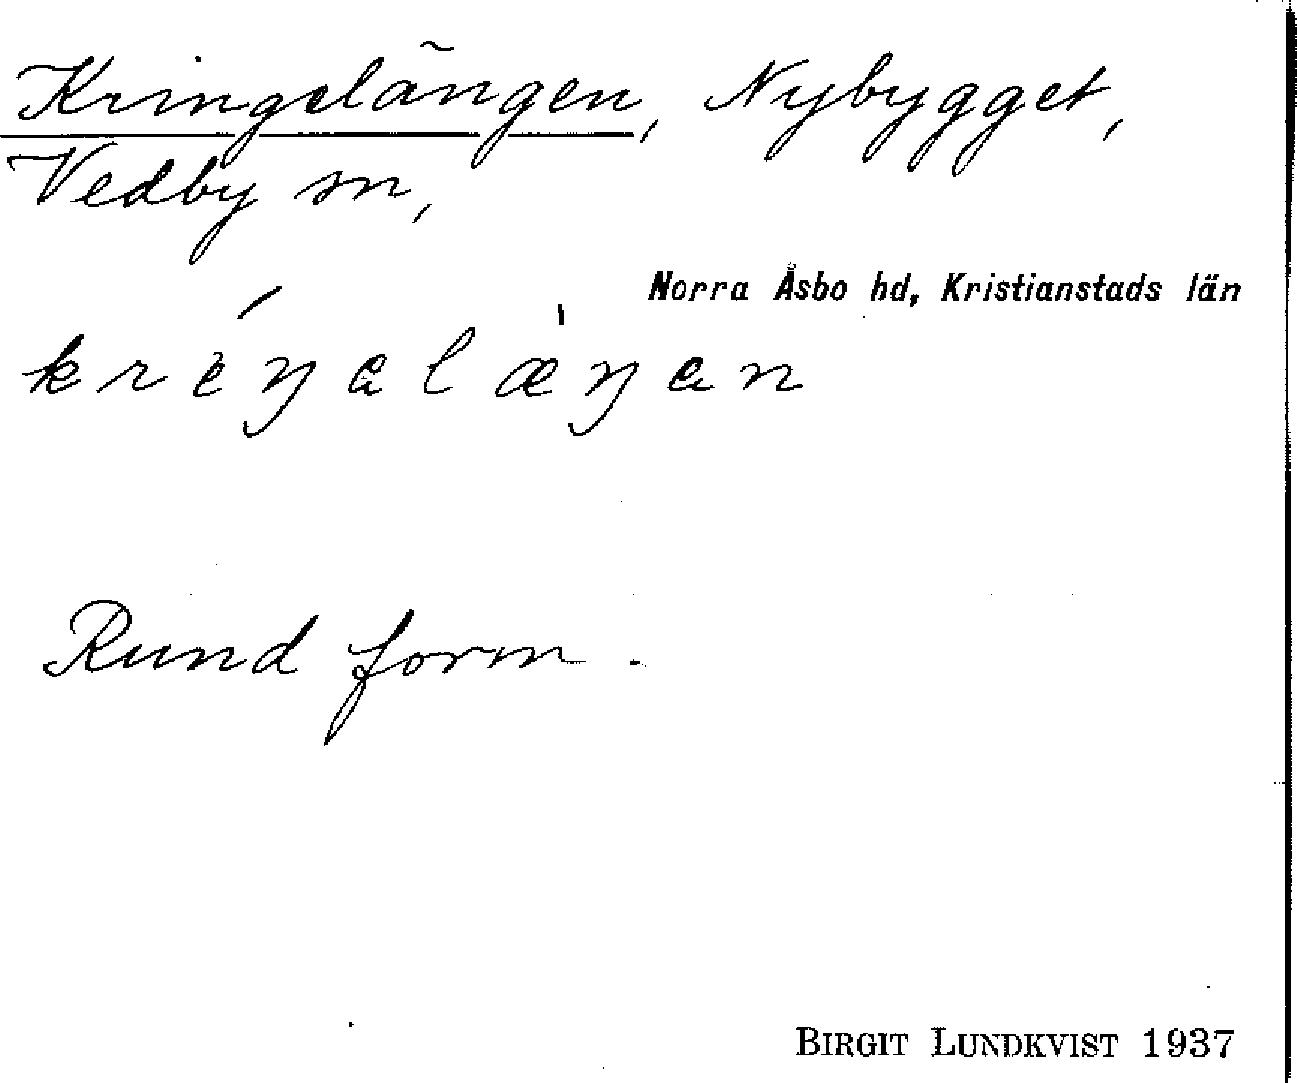 Kringelängen, Nybygget,
Vedby sn,
Norra Åsbo hd, Kristianstads län
kréŋəlæ̀ŋən
Rund form.
BIRGIT LUNDKVIST 1937